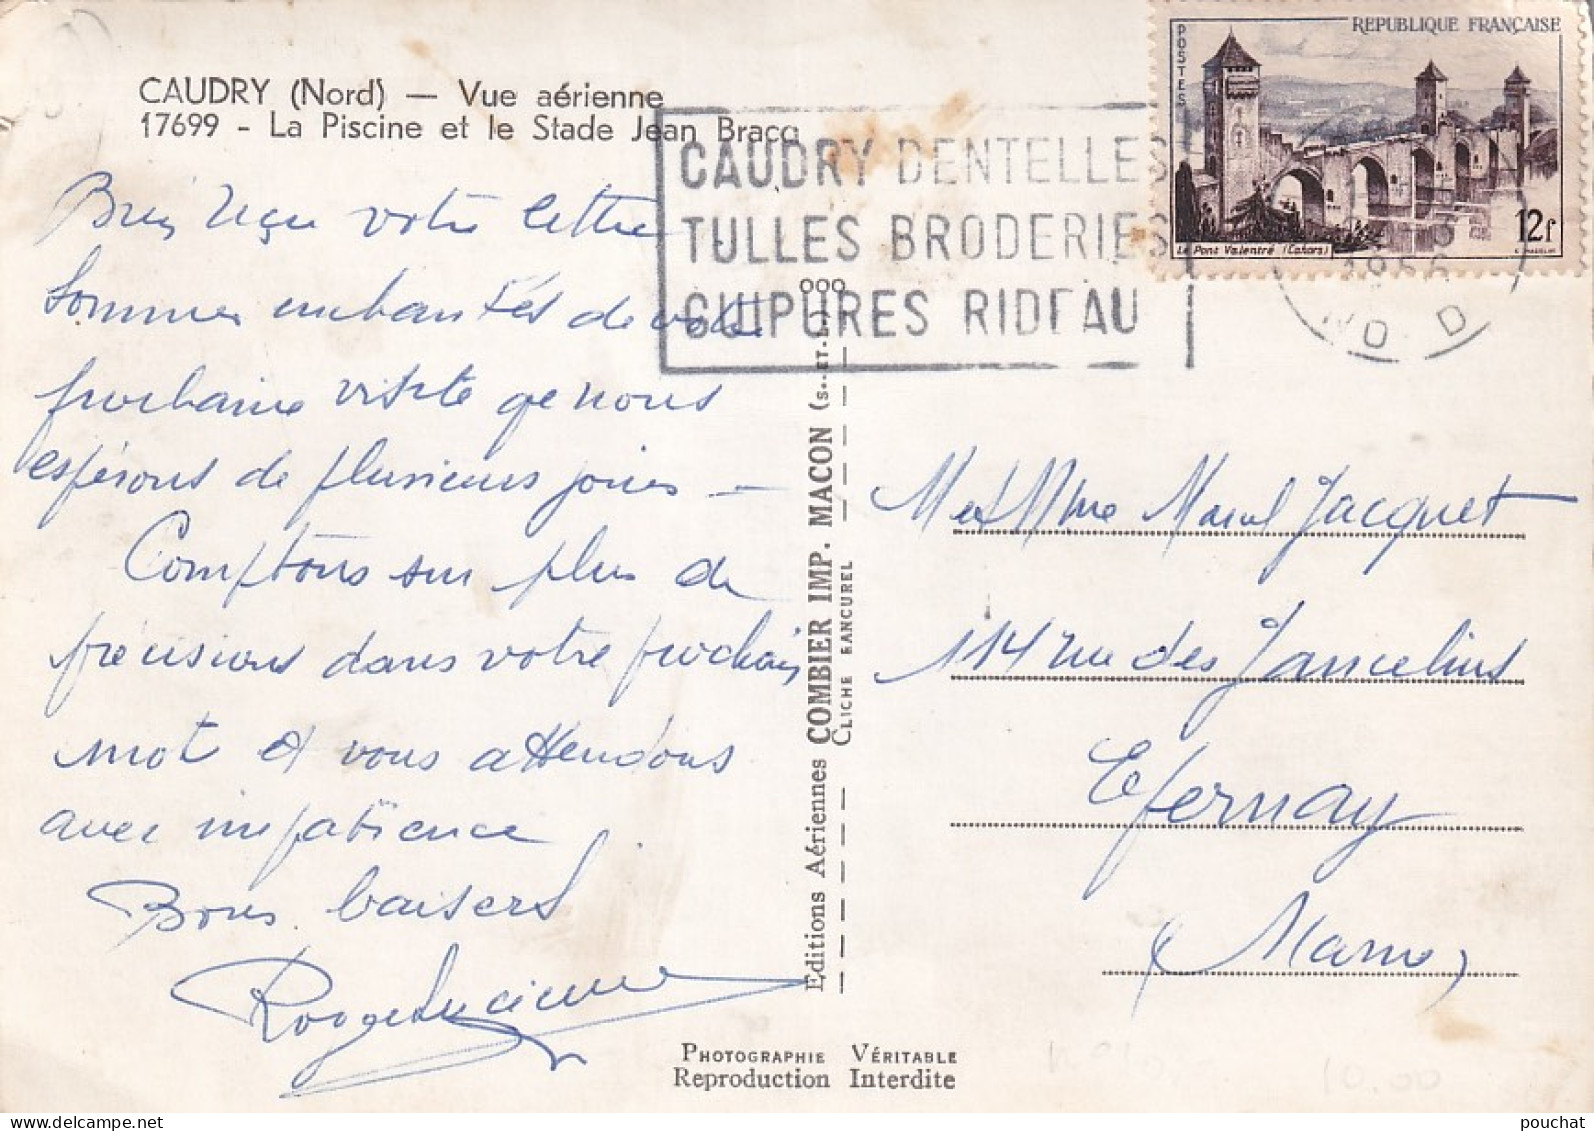 CAUDRY (Nord) — Vue aérienne
17699 - La Piscine et le Stade Jean Bracq
Bien reçu votre lettre
Sommes enchantés de votre
prochaine visite qe nous
espérons de plusieurs jours —
Comptons sur plus de
précisions dans votre prochain
mot et vous attendons
avec impatience
Bons baisers
Roger Lucienne
CAUDRY DENTELLES
TULLES BRODERIES
GUIPURES RIDEAU
REPUBLIQUE FRANÇAISE
POSTES
12f
Le Pont Valentré (Cahors)
1956
NORD
ooo
Editions Aériennes COMBIER IMP. MACON (S.-ET-L.)
CLICHE RANCUREL
M et Mme Marcel Jacquet
114 rue des Jancelins
Epernay
(Marne)
PHOTOGRAPHIE VÉRITABLE
Reproduction Interdite
10.00
pouchat